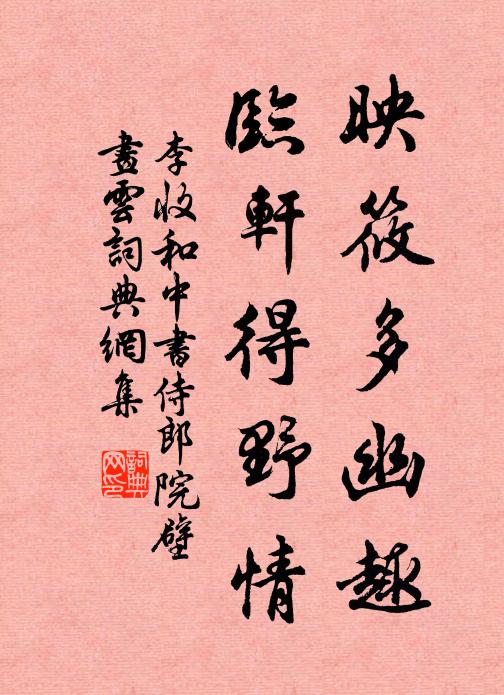 映筱多幽趣
臨軒得野情
李收和中書侍郎院壁
畫雲詞典網集
詞典网印